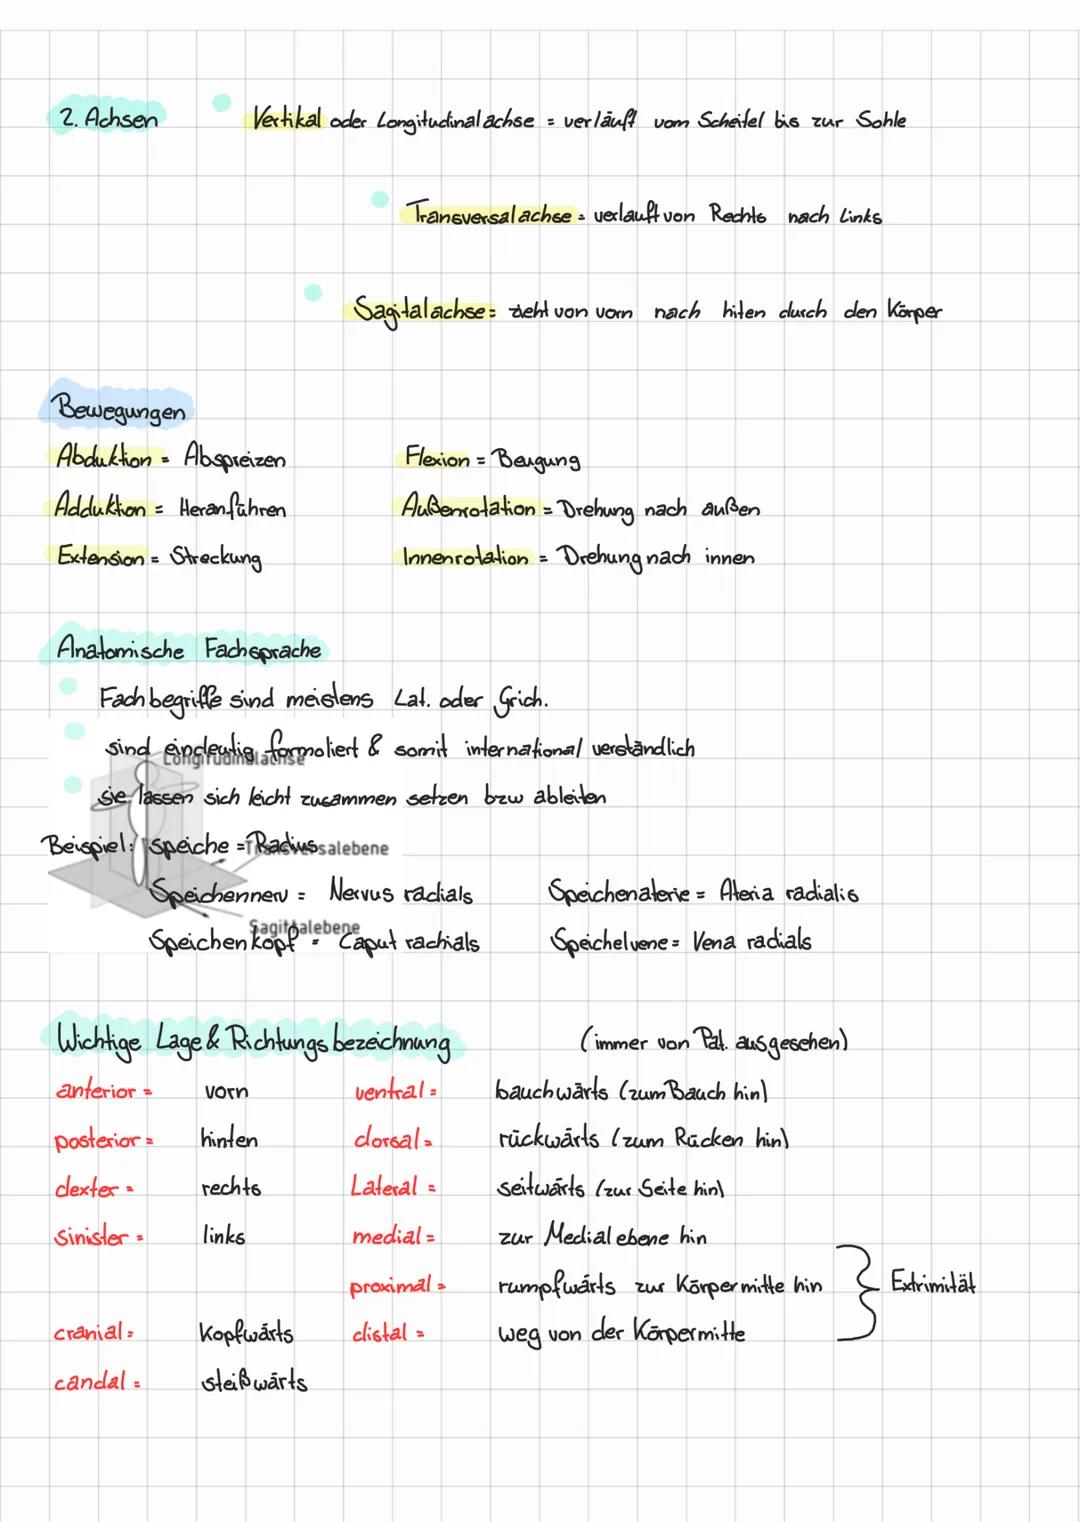 2. Achsen Vertikal oder Longitudinalachse = verläuft vom Scheitel bis zur Sohle
Transversalachse = verlauft von Rechts nach Links
Sagitalachse = zieht von vorn nach hiten durch den Körper
Bewegungen
Abduktion = Abspreizen Flexion = Beugung
Adduktion = Heranführen Außenrotation = Drehung nach außen
Extension = Streckung Innenrotation = Drehung nach innen
Anatomische Fachsprache
Fachbegriffe sind meistens Lat. oder Grich.
sind eindeutig formoliert & somit international verständlich
Longitudinalachse
sie lassen sich leicht zusammen setzen bzw ableiten
Beispiel: Speiche = Radius
Transversalebene
Speichennerv = Nervus radials Speichenaterie = Ateria radialis
Sagittalebene
Speichenkopf = Caput rachials Speichelvene = Vena radials
Wichtige Lage & Richtungsbezeichnung (immer von Pat. ausgesehen)
anterior = vorn ventral = bauchwärts (zum Bauch hin)
posterior = hinten dorsal = rückwärts (zum Rücken hin)
dexter = rechts Lateral = seitwärts (zur Seite hin)
sinister = links medial = zur Medialebene hin
proximal = rumpfwärts zur Körpermitte hin Extrimität
cranial = Kopfwärts distal = weg von der Körpermitte
candal = steißwärts